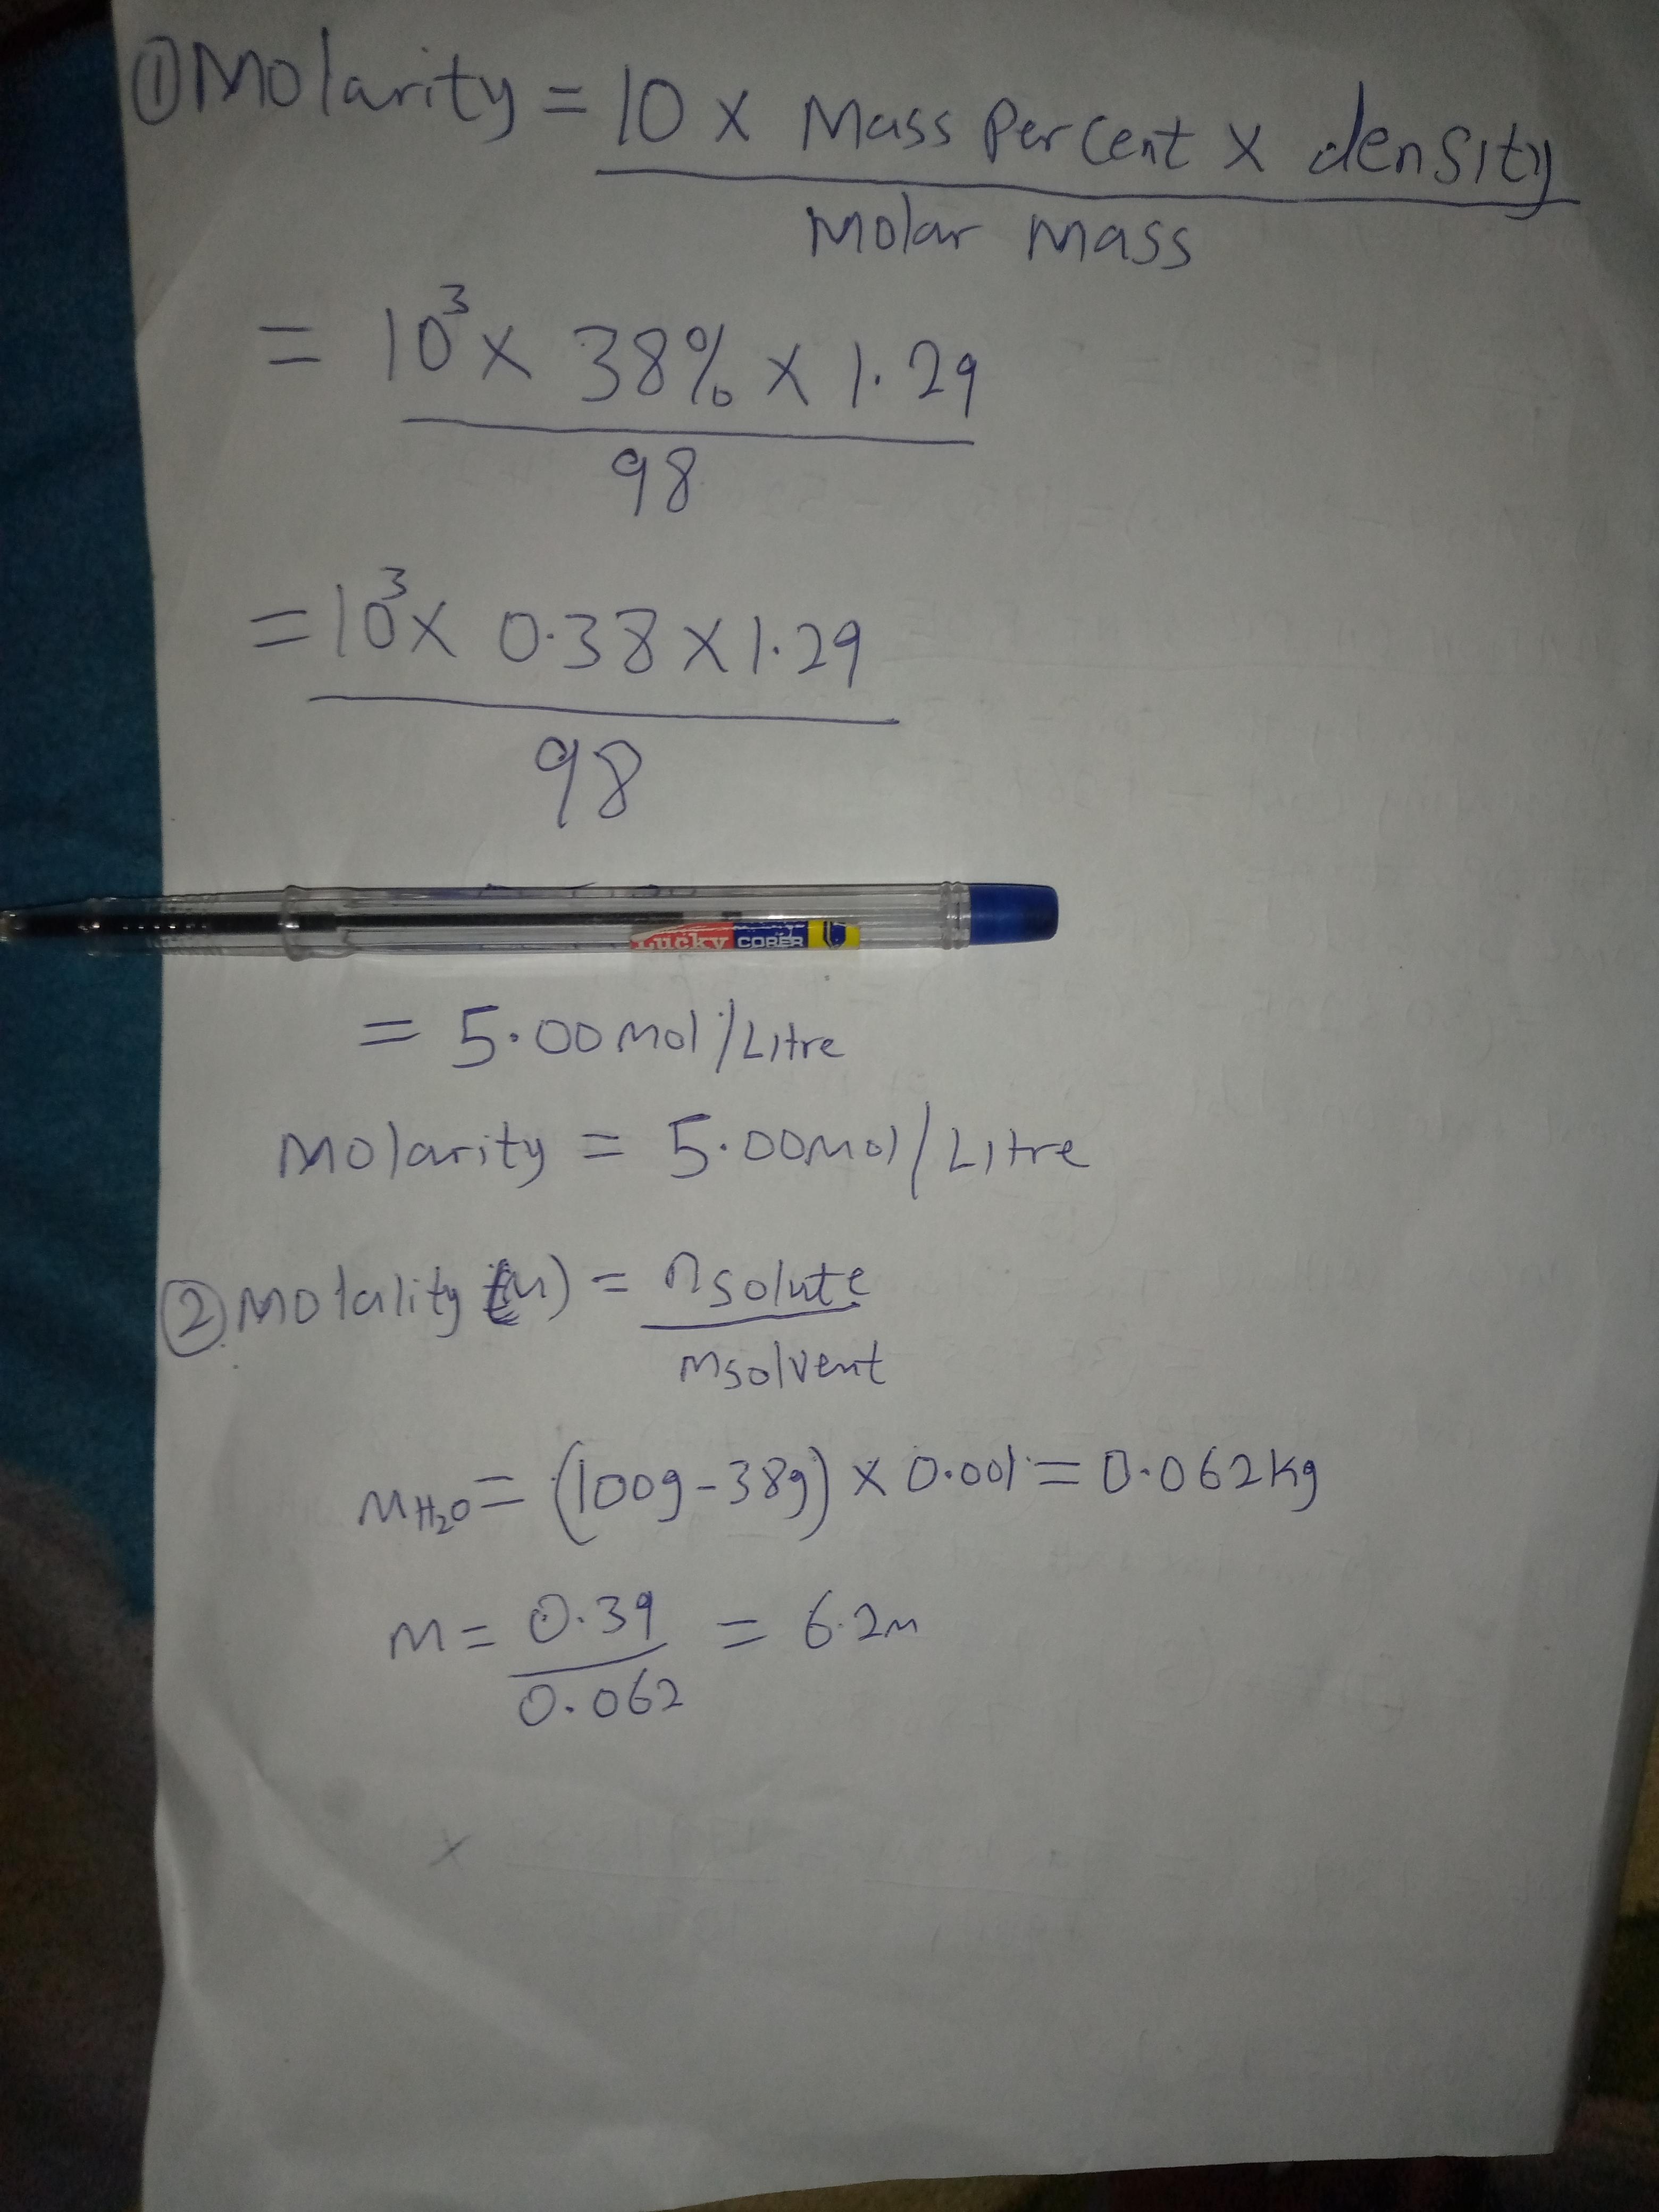 ① Molarity = 10 x Mass Percent x density
Molar Mass
= 10³ x 38% x 1.29
98
= 10³ x 0.38 x 1.29
98
Lucky CORER
= 5.00 Mol/Litre
Molarity = 5.00 Mol/Litre
② Molality (M) = nsolute
msolvent
MH₂O = (100g - 38g) x 0.001 = 0.062 kg
M = 0.39 = 6.2m
0.062